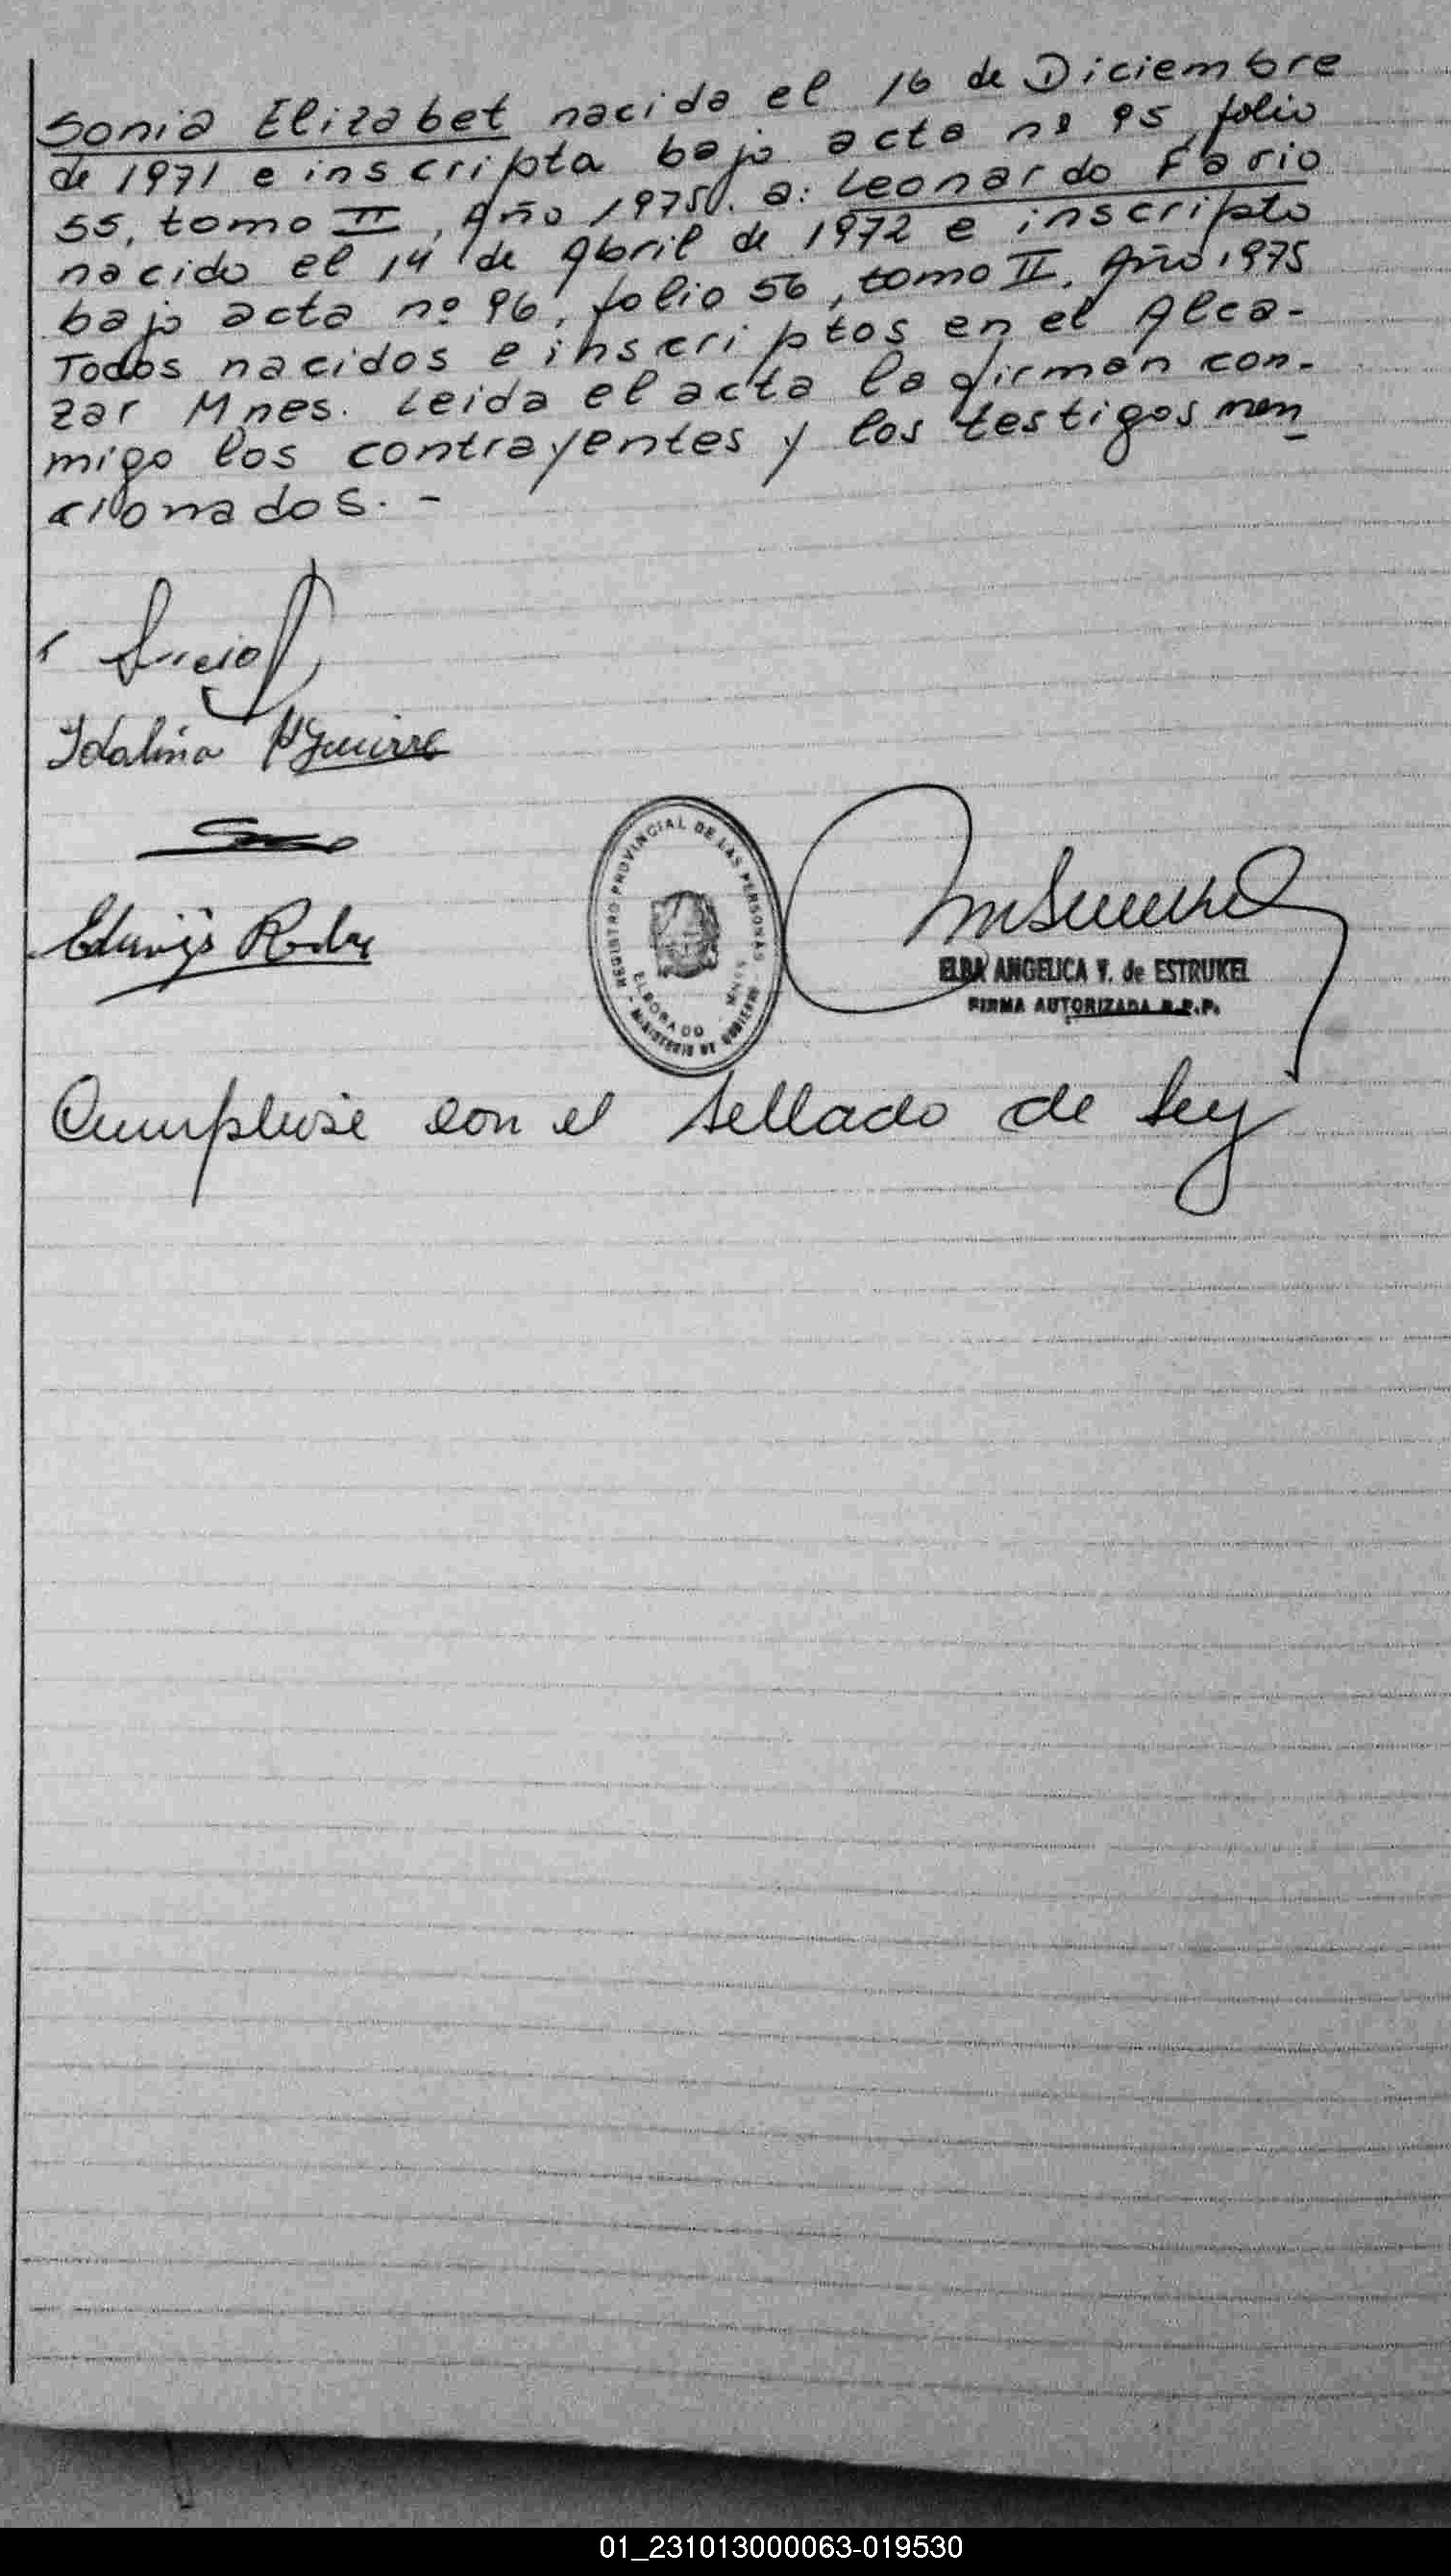 Sonia Elizabet nacida el 16 de Diciembre
de 1971 e inscripta bajo acta nº 95, folio
55, tomo II, Año 1975. a: Leonardo Fabio
nacido el 14 de Abril de 1972 e inscripto
bajo acta nº 96, folio 56, tomo II, Año 1975
Todos nacidos e inscriptos en el Alca-
zar Mnes. Leida el acta la firman con-
migo los contrayentes y los testigos men
cionados. -
Idalina Aguirre
REGISTRO PROVINCIAL DE LAS PERSONAS
ELDORADO - MNES
- MINISTERIO DE GOBIERNO -
ELBA ANGELICA V. de ESTRUKEL
FIRMA AUTORIZADA R.P.P.
Cumplese con el sellado de ley
01_231013000063-019530